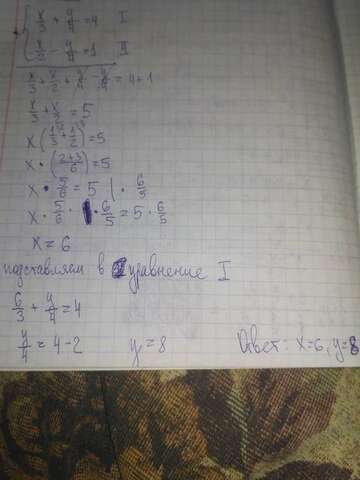 x/3 + y/4 = 4 I
x/2 - y/4 = 1 II
x/3 + x/2 + y/4 - y/4 = 4+1
x/3 + x/2 = 5
x(1/3 + 1/2) = 5
x • (2+3/6) = 5
x • 5/6 = 5 | • 6/5
x • 5/6 • 6/5 = 5 • 6/5
x = 6
подставляем в уравнение I
6/3 + y/4 = 4
y/4 = 4-2 y = 8 Ответ: x=6, y=8